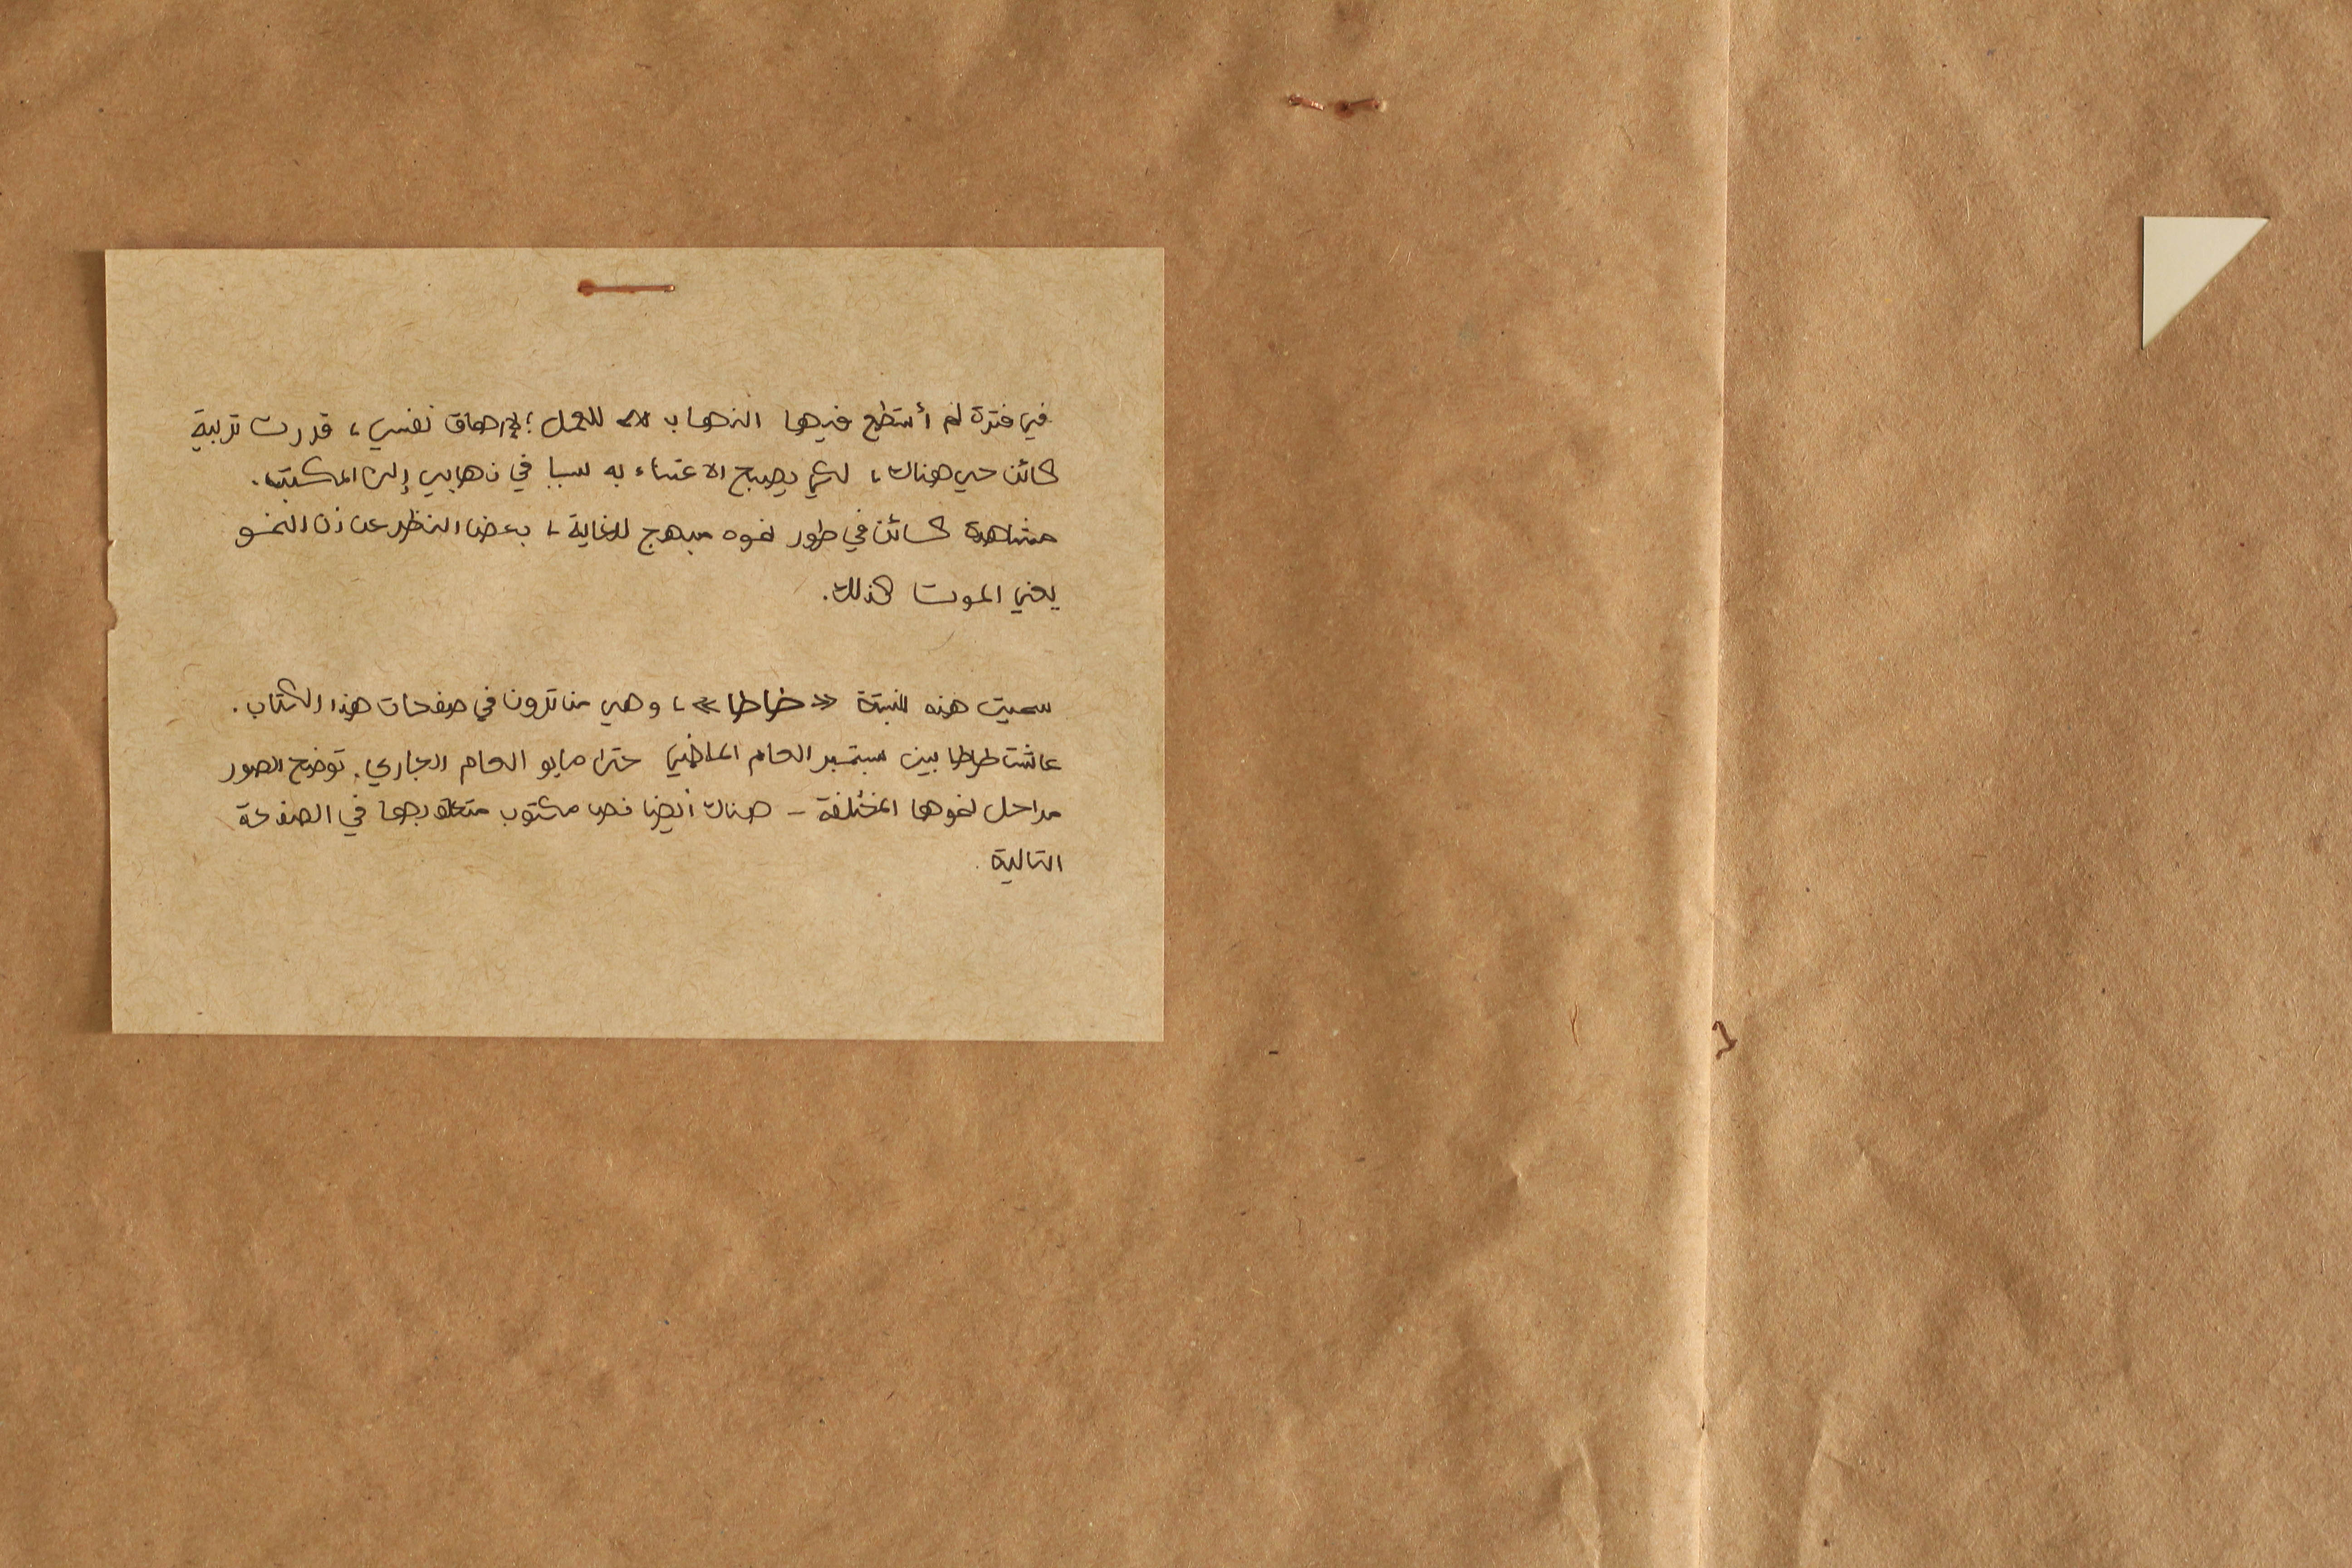 في فترة لم أستطع فيها الذهاب للعمل؛ لإرهاق نفسي، قررت تربية
كائن حي هناك، لكي يصبح الاعتناء به سببا في ذهابي إلى المكتب.
مشاهدة كائن في طور نموه مبهج للغاية، بغض النظر عن أن النمو
يعني الموت كذلك.
سميت هذه النبتة «طاطا»، وهي من ترون في صفحات هذا الكتاب.
عاشت طاطا بين سبتمبر العام الماضي حتى مايو العام الجاري. توضح الصور
مراحل نموها المختلفة - هناك أيضا نص مكتوب متعلق بها في الصفحة
التالية.